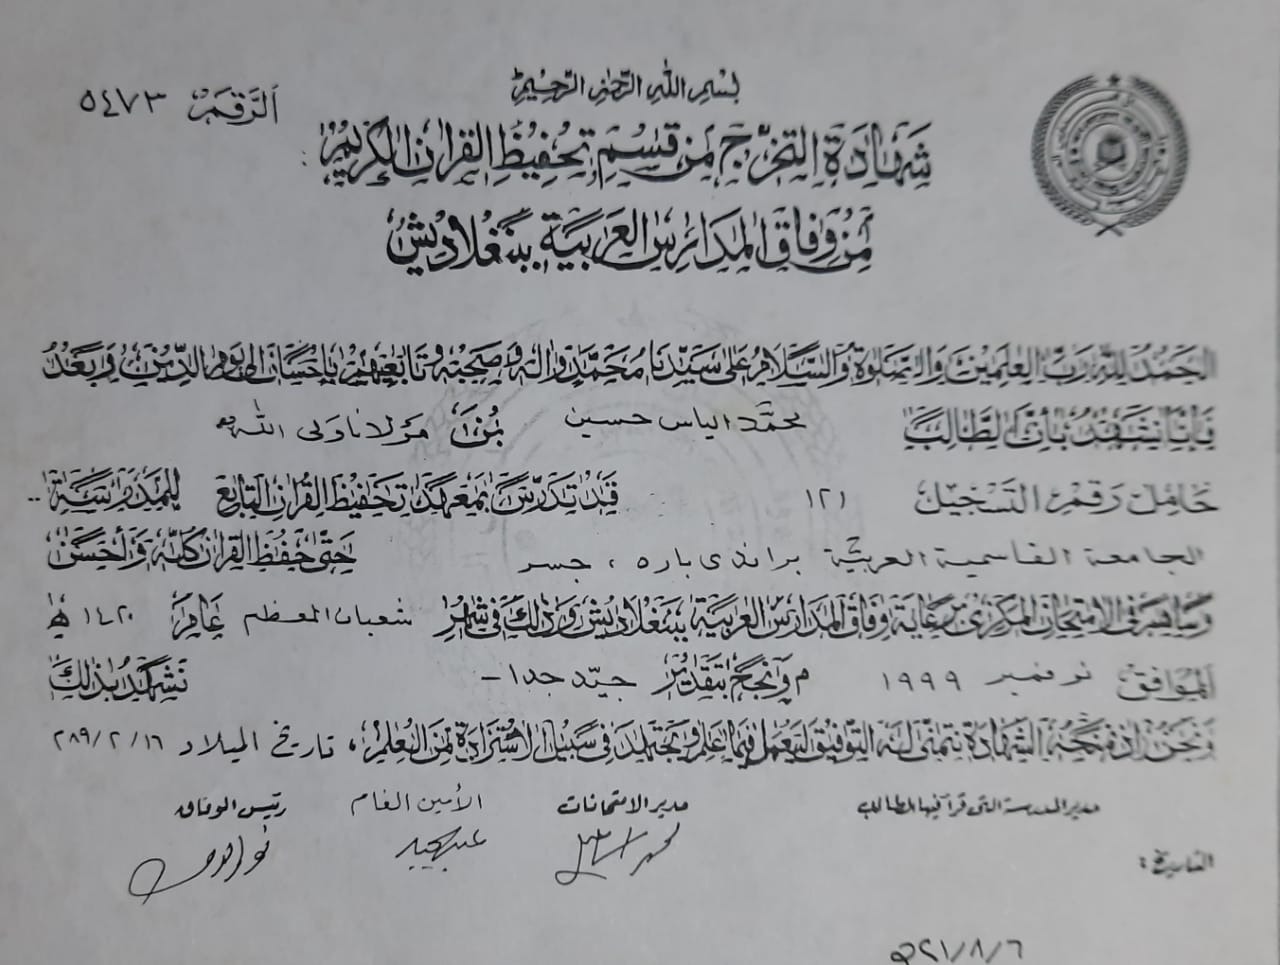 بسم الله الرحمن الرحيم
الرقم ٥٤٧٣
شهادة التخرج من قسم تحفيظ القرآن الكريم :
من وفاق المدارس العربية ببنغلاديش
الحمد لله رب العلمين والصلوة والسلام على سيدنا محمد واله وصحبه وتابعيهم باحسان الى يوم الدين وبعد
فاننا نشهد بأن الطالب محمد الياس حسين بن مولانا ولى الله
حامل رقم التسجيل ١٢١ قد تدرس بمعهد تحفيظ القرآن التابع للمدرسة ..
الجامعة القاسمية العربية براندى باره ، جسر حتى حفظ القرآن كله وأحسن
وساهم فى الامتحان المركزى برعاية وفاق المدارس العربية ببنغلاديش وذلك فى شهر شعبان المعظم عام ١٤٢٠ ھ
الموافق نوفمبر ١٩٩٩ م وانجح بتقدير جيد جدا - نشهد بذلك
ونحن اذ نمنحه الشهادة نتمنى له التوفيق ليعمل فيما علم ويجتهد فى سبيل الاستزادة من العلم ، تاريخ الميلاد ٢٨٩/٢/١٦
مدير المدرسة التى قرأ فيها الطالب مدير الامتحانات الأمين العام رئيس الوفاق
التاريخ :